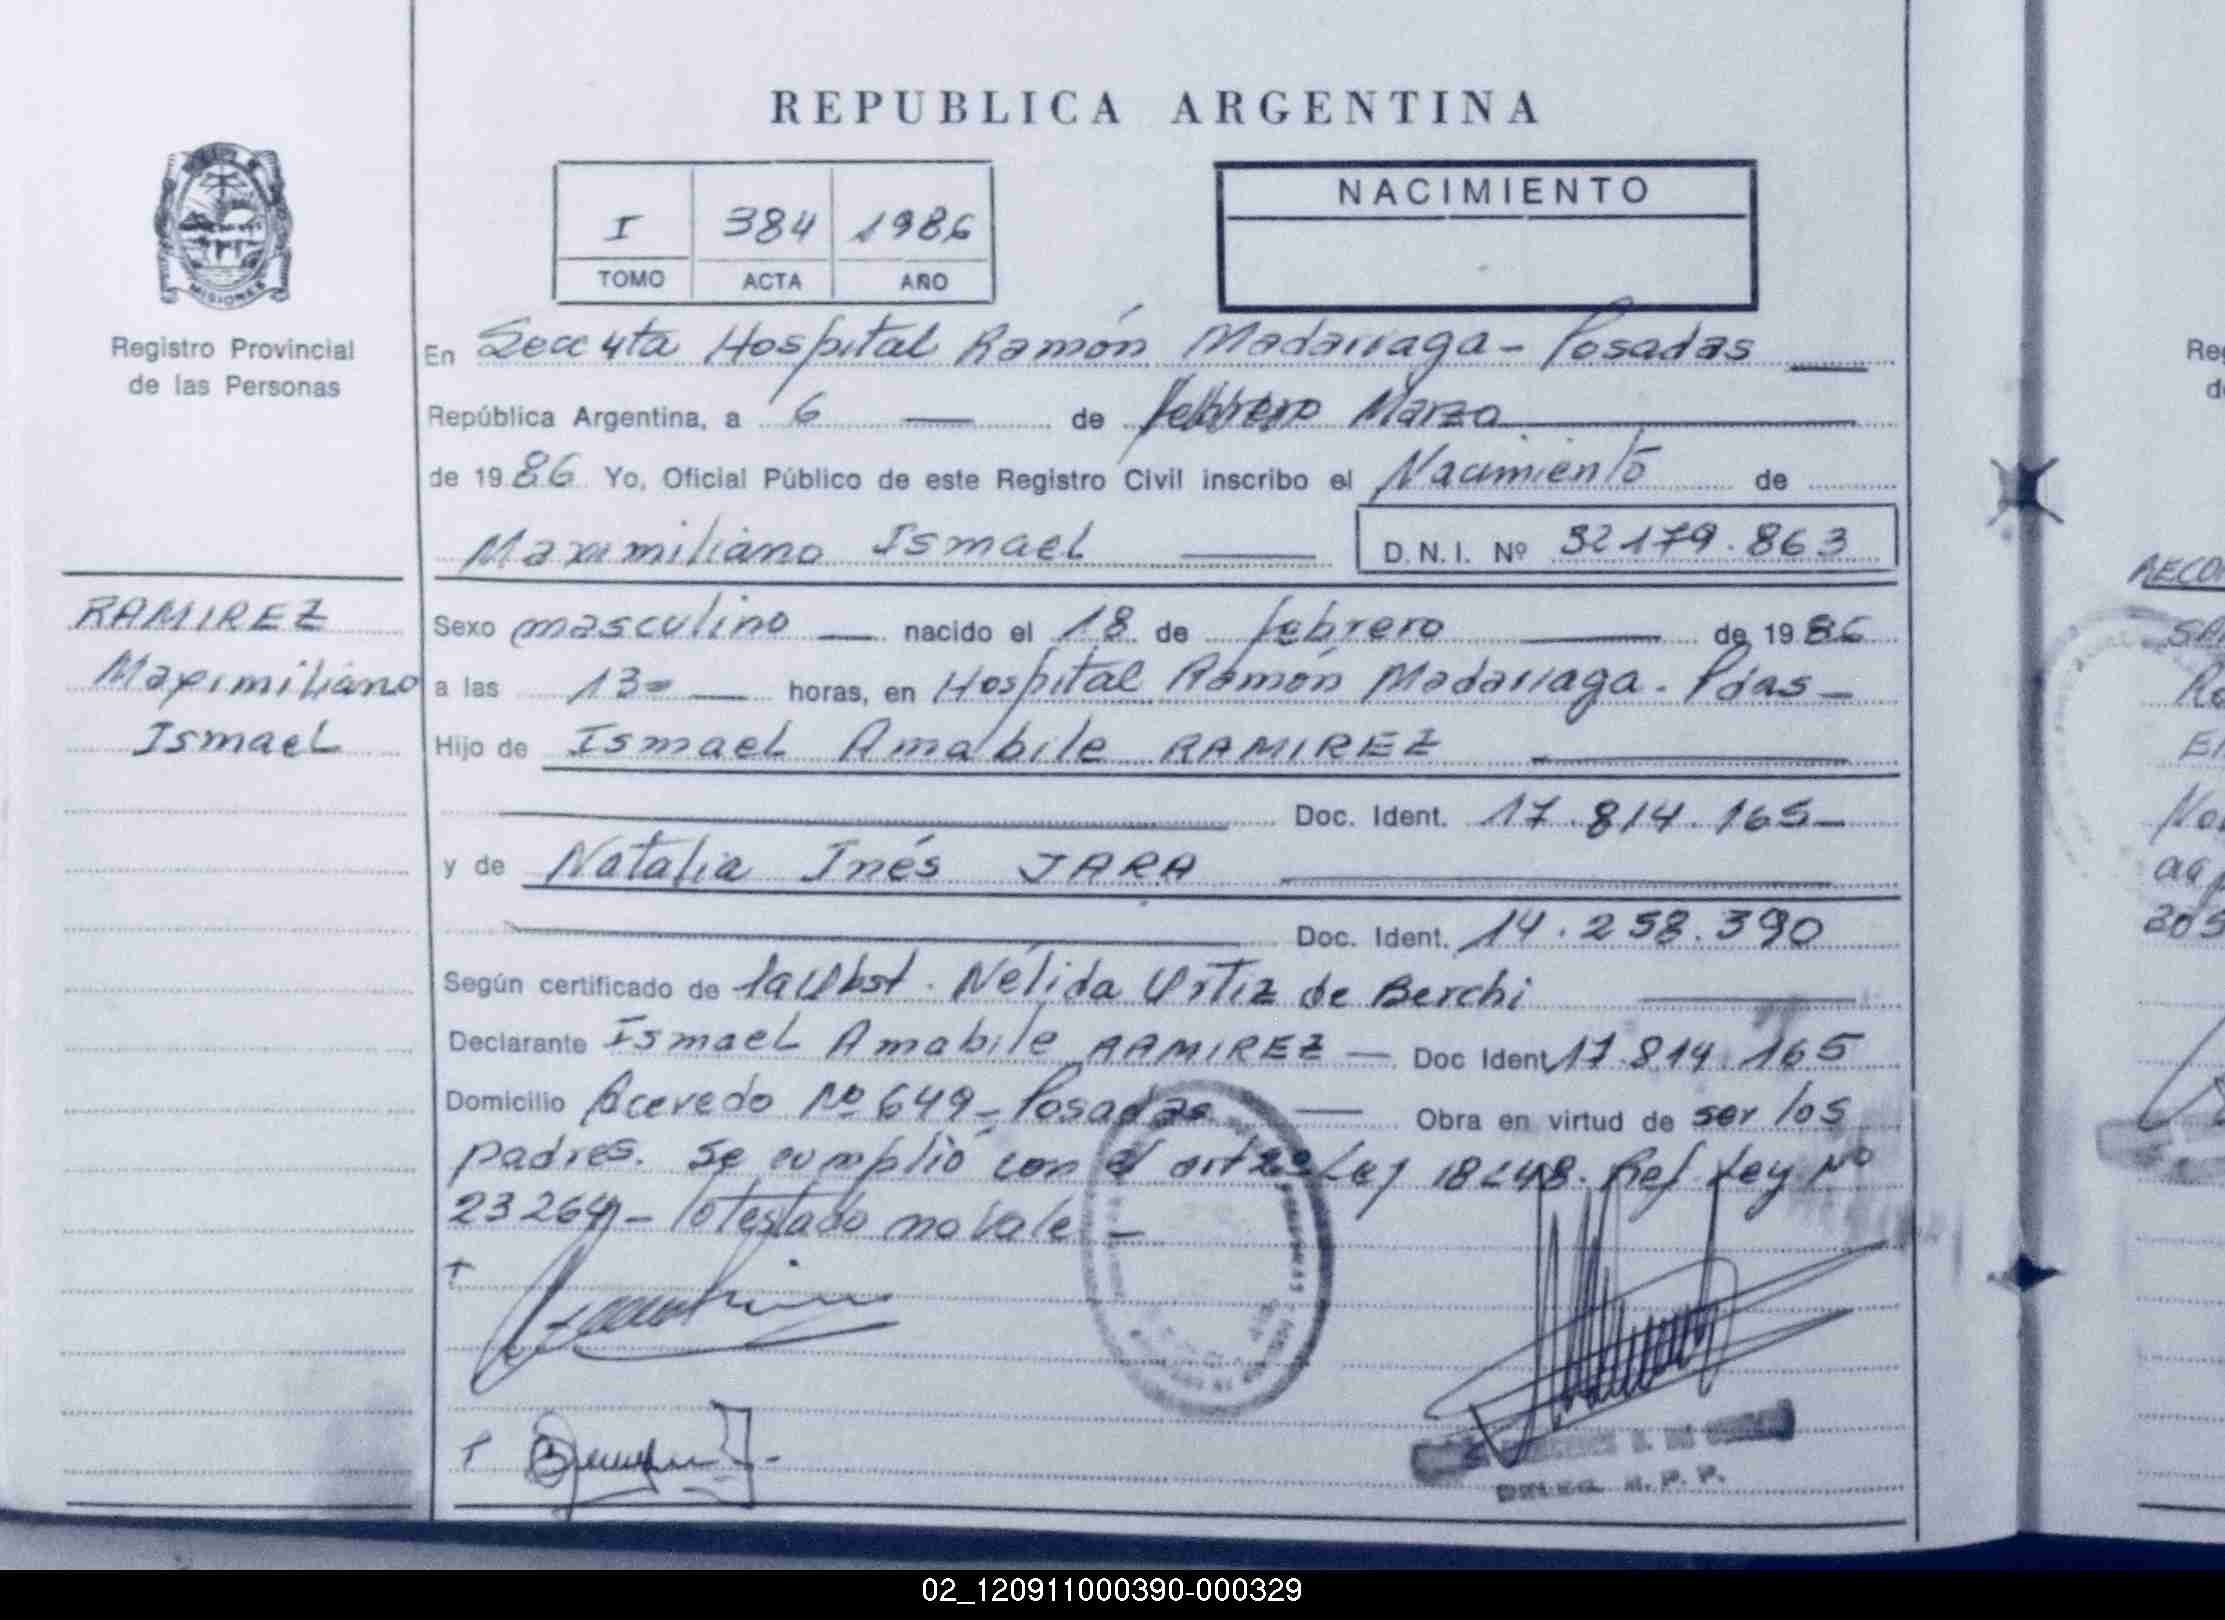 REPUBLICA ARGENTINA
MISIONES
Registro Provincial
de las Personas
I 384 1986
TOMO ACTA AÑO
NACIMIENTO
En Secc 4ta Hospital Ramón Madariaga - Posadas
República Argentina, a 6 de febrero Marzo
de 1986 Yo, Oficial Público de este Registro Civil inscribo el Nacimiento de
Maximiliano Ismael D.N.I. Nº 32179.863
RAMIREZ
Maximiliano
Ismael
Sexo masculino nacido el 18 de febrero de 1986
a las 13 horas, en Hospital Ramón Madariaga. Pdas
Hijo de Ismael Amabile RAMIREZ
Doc. Ident. 17.814.165
y de Natalia Inés JARA
Doc. Ident. 14.258.390
Según certificado de la Obst. Nélida Urtiz de Berchi
Declarante Ismael Amabile RAMIREZ Doc Ident 17.814.165
Domicilio Acevedo Nº 649 - Posadas Obra en virtud de ser los
padres. Se cumplió con el art 2º Ley 18248. Ref Ley Nº
23264 - lo testado no vale -
DELEG. R. P. P.
02_120911000390-000329